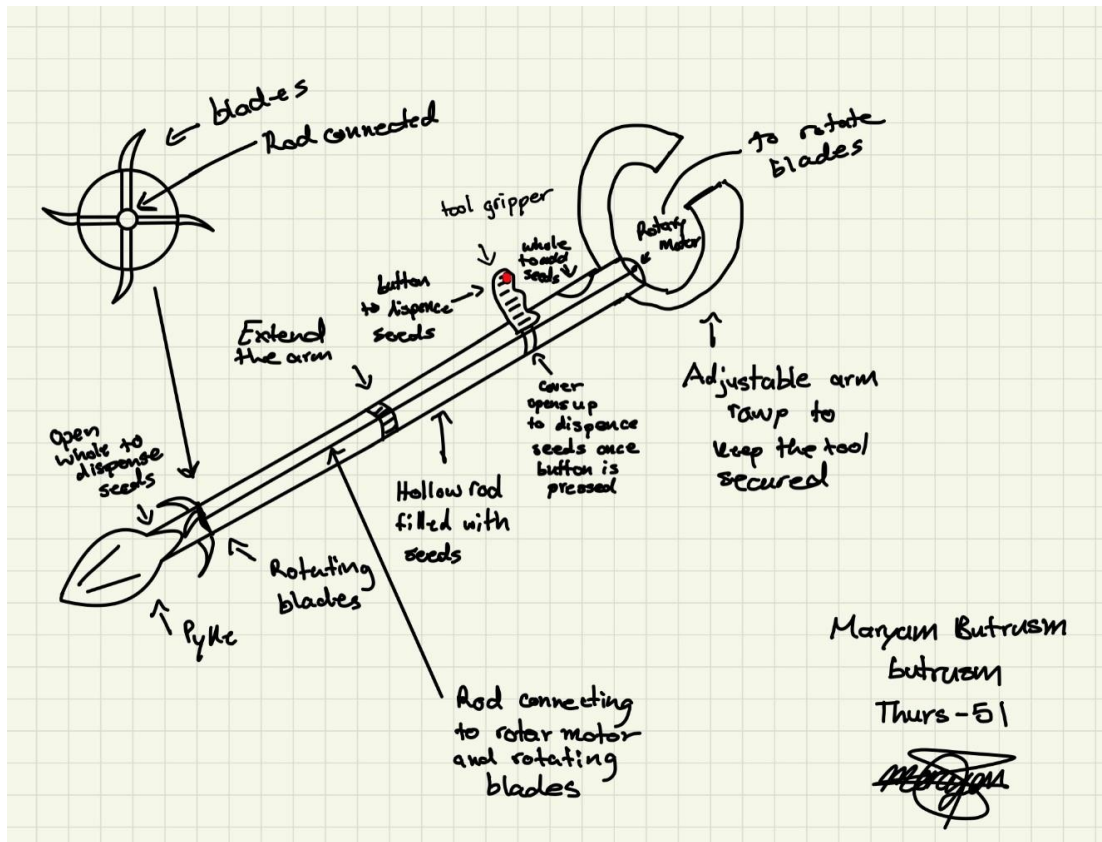 blades
Rod connected
to rotate
blades
tool gripper
whole
to add
seeds
Rotary
motor
button
to dispence
seeds
Extend
the arm
cover
opens up
to dispence
seeds once
button is
pressed
Adjustable arm
rawp to
keep the tool
secured
Open
whole to
dispense
seeds
Hollow rod
filled with
seeds
Rotating
blades
Pyke
Rod connecting
to rotar motor
and rotating
blades
Maryam Butrusm
butrusm
Thurs-51